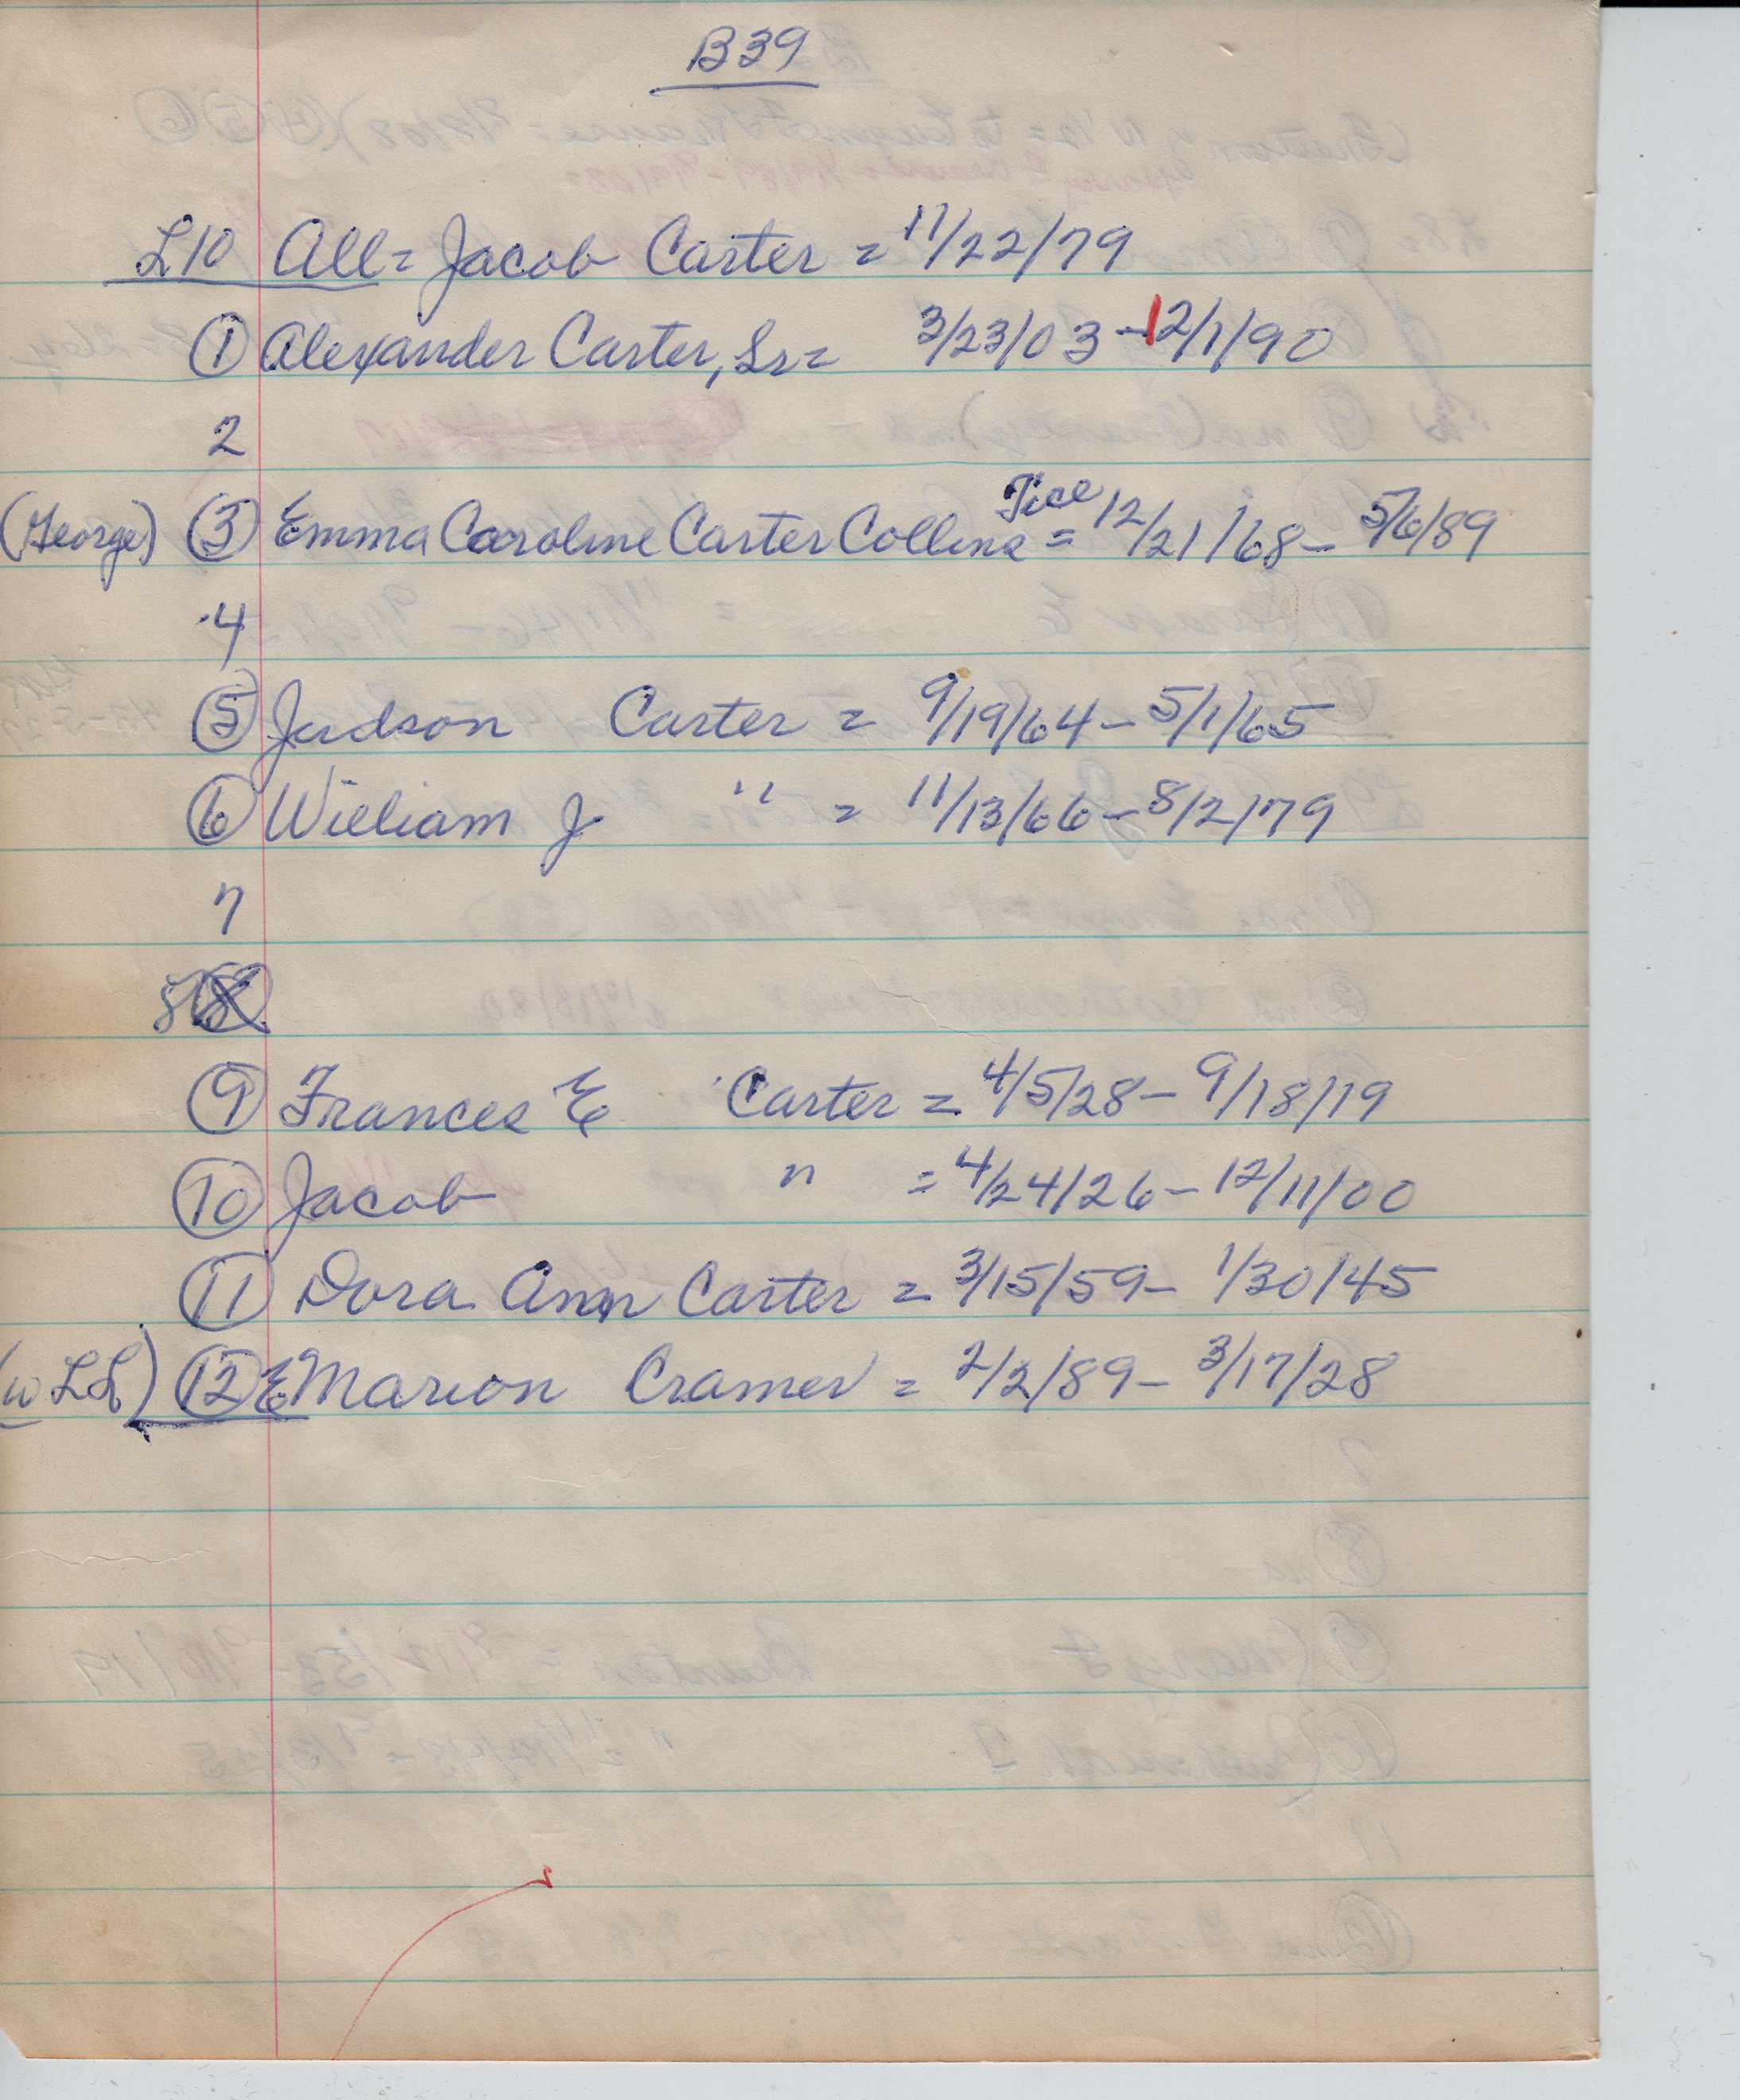 B39
L10 All = Jacob Carter = 11/22/79
1 Alexander Carter, Sr = 3/23/03 - 12/1/90
2
(George) 3 Emma Caroline Carter Collins Tice = 12/21/68 - 5/6/89
4
5 Judson Carter = 9/19/64 - 5/1/65
6 William J " = 11/13/66 - 8/2/79
7
8
9 Frances E Carter = 4/5/28 - 9/18/19
10 Jacob " = 4/24/26 - 12/11/00
11 Dora Ann Carter = 3/15/59 - 1/30/45
12 E Marion Cramer = 2/2/89 - 3/17/28